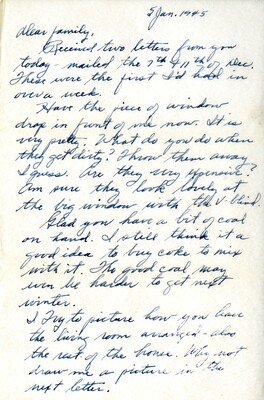 5 Jan. 1945
Dear Family,
Received two letters from you
today - mailed the 7th & 11th of Dec.
These were the first I'd had in
over a week.
Have the piece of window
drop in front of me now. It is
very pretty. What do you do when
they get dirty? Throw them away
I guess. Are they very expensive?
Am sure they look lovely at
the big window with the V. blind.
Glad you have a bit of coal
on hand. I still think it a
good idea to buy coke to mix
with it. The good coal may
be harder to get next
winter.
I try to picture how you have
the living room arranged - also
the rest of the house. Why not
draw me a picture in the
next letter.